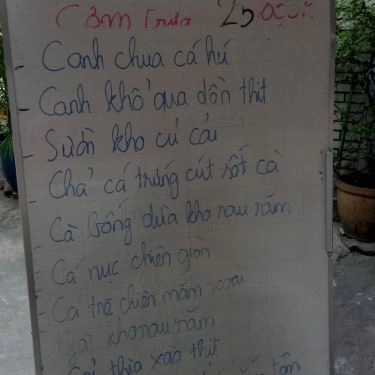 Cơm trưa 25
- Canh chua cá hú
- Canh khổ qua dồn thịt
- Sườn kho củ cải
- Chả cá trứng cút sốt cà
- Cá bống dừa kho rau răm
- Cá nục chiên giòn
- Cá trê chiên mắm xoài
- Gà kho rau răm
thìa xào thịt